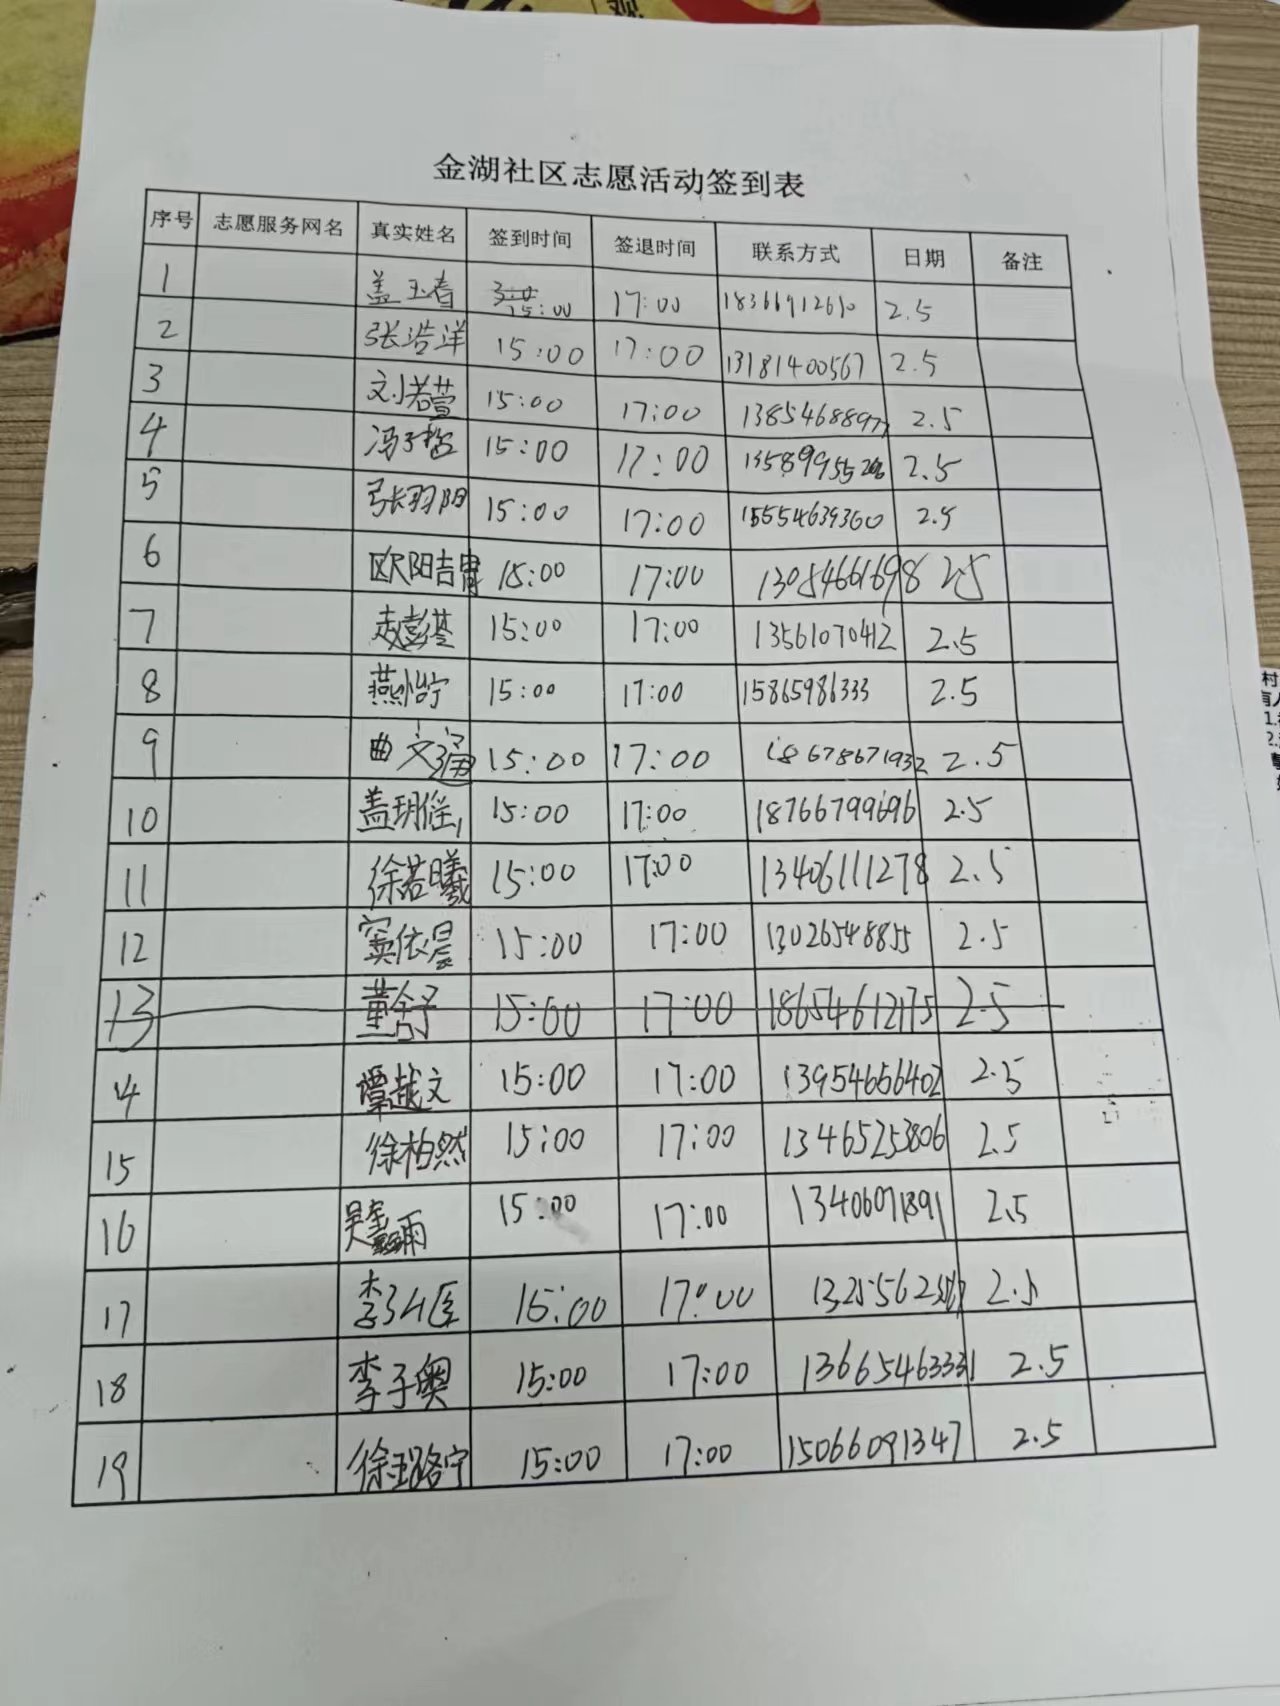 观
金湖社区志愿活动签到表
序号 志愿服务网名 真实姓名 签到时间 签退时间 联系方式 日期 备注
1 盖玉春 15:00 17:00 2.5
2 张浩洋 15:00 17:00 13181400567 2.5
3 刘若萱 15:00 17:00 2.5
4 冯子哲 15:00 17:00 2.5
5 张羽阳 15:00 17:00 15554639360 2.5
6 欧阳吉 15:00 17:00 13054661698 2.5
7 15:00 17:00 13561070412 2.5
8 燕怡宁 15:00 17:00 15865986333 2.5
9 曲文 15:00 17:00 18678671932 2.5
10 盖玥 15:00 17:00 18766799696 2.5
11 徐若曦 15:00 17:00 13406111278 2.5
12 窦依晨 15:00 17:00 13026548855 2.5
13 董 15:00 17:00 18654612175 2.5
14 谭越文 15:00 17:00 13954656402 2.5
15 徐柏然 15:00 17:00 13465253806 2.5
16 吴 雨 15:00 17:00 13406071891 2.5
17 李 15:00 17:00 2.5
18 李子奥 15:00 17:00 13665463331 2.5
19 徐璐宁 15:00 17:00 15066091347 2.5
村
有人
1.
2.